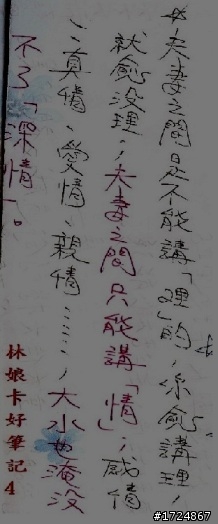 *夫妻之間是不能講「理」的,你愈講理,
就愈沒理;夫妻之間只能講「情」;感情
、真情、愛情、親情……;大水也淹沒
不了「深情」。
林娘卡好筆記4
#1724867